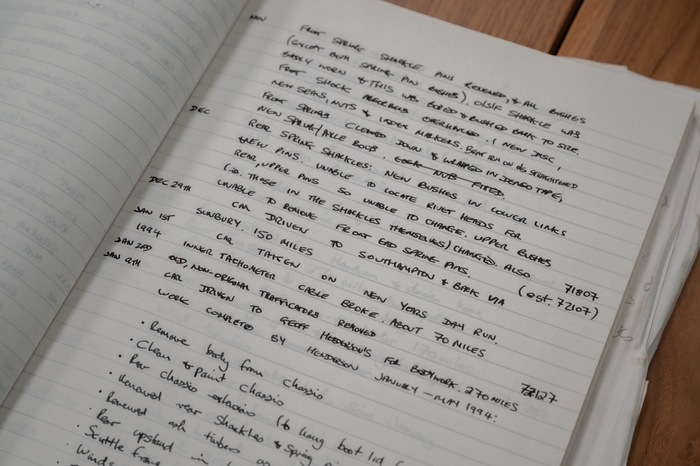 NOV FRONT SPRING SHACKLE PINS RENEWED, & ALL BUSHES
(EXCEPT BOTH SPRING PIN BUSHES). O/S/R SHACKLE WAS
BADLY WORN & THIS WAS BORED & BUSHED BACK TO SIZE.
FRONT SHOCK ABSORBERS OVERHAULED. (NEW DISC,
NEW SEALS, NUTS & INDEX MARKERS. BENT RUN ON O/S STRAIGHTENED
DEC FRONT SPRINGS CLEANED DOWN & WRAPPED IN DENSO TAPE,
NEW SPRING/AXLE BOLTS. FITTED
REAR SPRING SHACKLES: NEW BUSHES IN LOWER LINKS
& NEW PINS. UNABLE TO LOCATE RIVET HEADS FOR
REAR, UPPER PINS SO UNABLE TO CHANGE UPPER BUSHES
(i.e. THOSE IN THE SHACKLES THEMSELVES) CHANGED. ALSO
UNABLE TO REMOVE FRONT END SPRING PINS.
DEC 29TH CAR DRIVEN TO SOUTHAMPTON & BACK VIA 71807
SUNBURY. 150 MILES (est. 72107)
JAN 1ST 1994 CAR TAKEN ON NEW YEARS DAY RUN.
INNER TACHOMETER CABLE BROKE. ABOUT 70 MILES
JAN 2ND OLD, NON-ORIGINAL TRAFFICATORS REMOVED
JAN 9TH CAR DRIVEN TO GEOFF HENDERSON'S FOR BODYWORK. 270 MILES 72127
WORK COMPLETED BY HENDERSON JANUARY – MAY 1994:
• Remove body from chassis
• Clean & paint chassis
• Rear chassis extension (to hang boot lid f
• Renewed rear shackles & spring pi
• Renewed ash timbers
• Rear upstand in
• Scuttle frame
• Winds